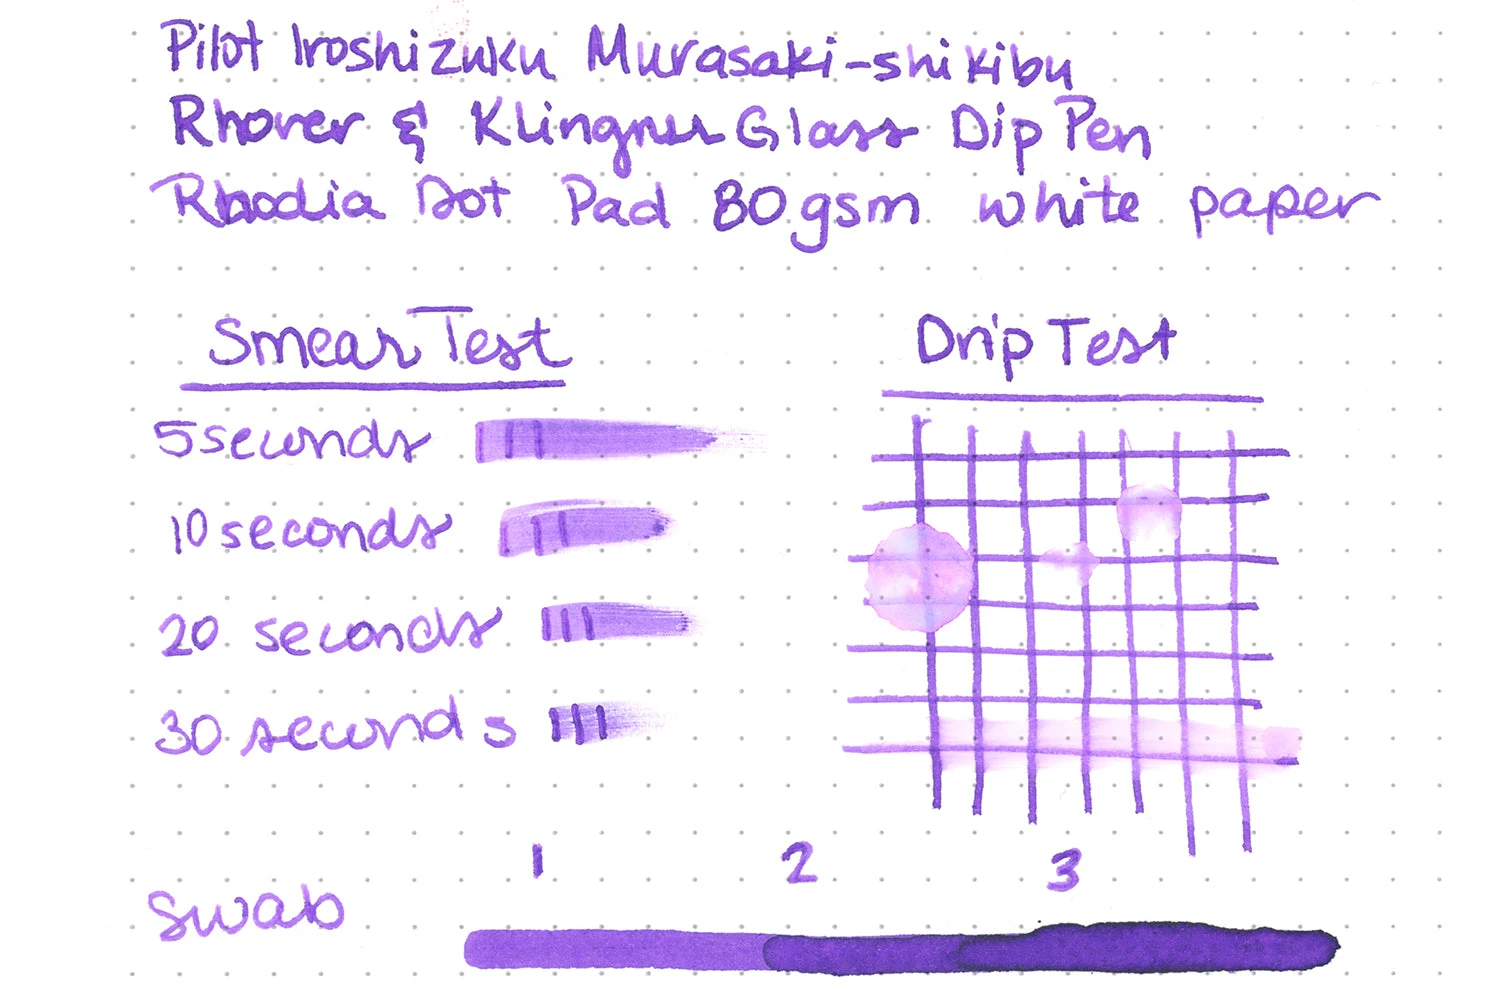 Pilot Iroshizuku Murasaki-shikibu
Rhorer & Klingner Glass Dip Pen
Rhodia Dot Pad 80gsm white paper
Smear Test
5 seconds
10 seconds
20 seconds
30 seconds
Drip Test
1 2 3
Swab